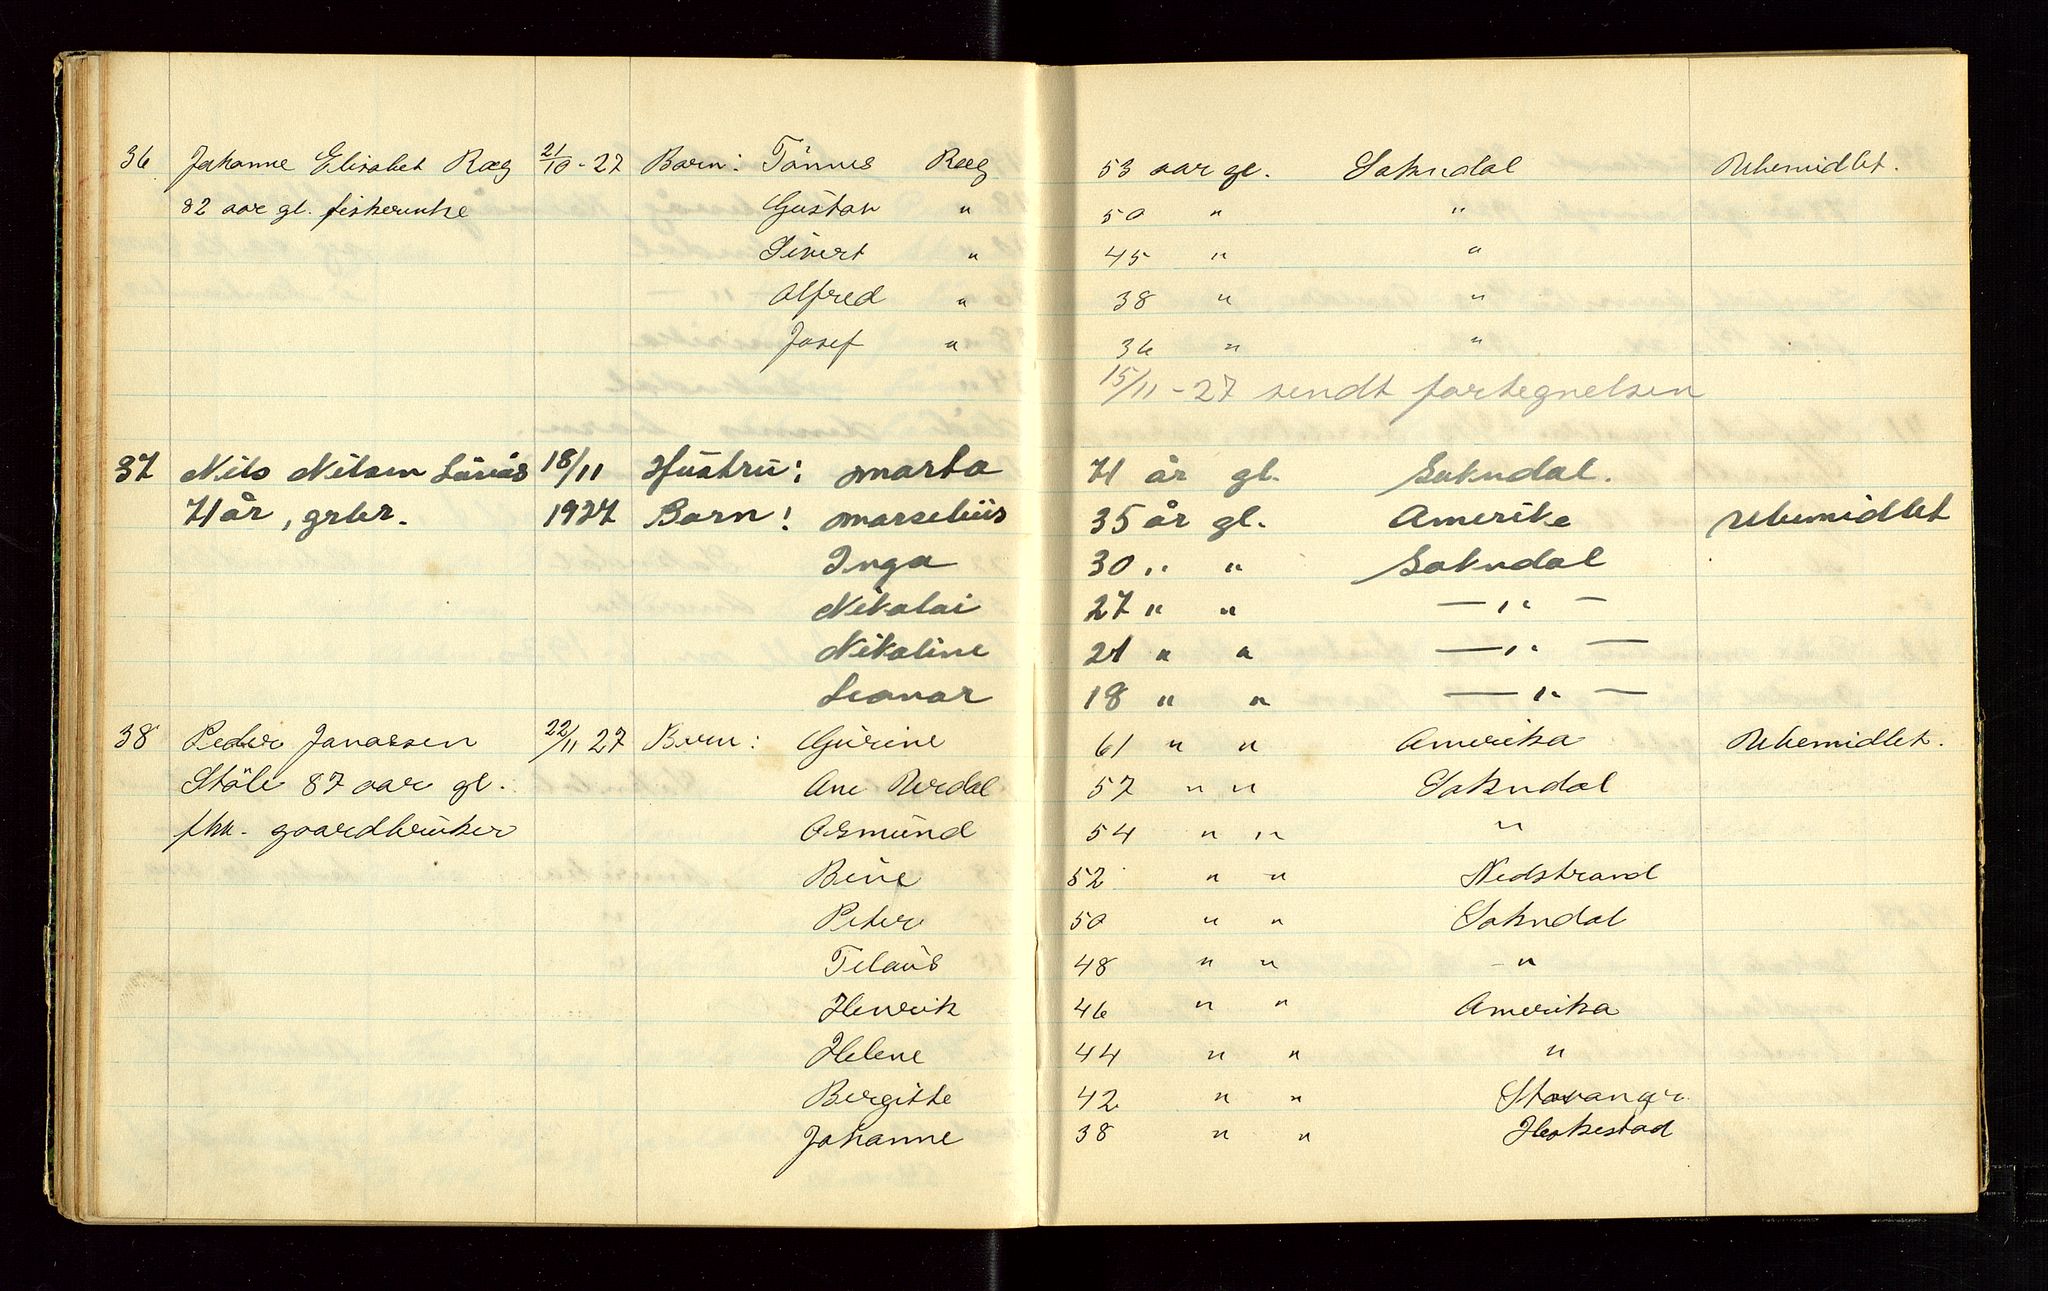 36 Johanne Elisabet Ræg 21/10 - 27 Barn: Tönnes Ræg 53 aar gl. Sokndal Ubemidlet.
82 aar gl. fiskerenke Gustav " 50 " "
Sivert " 45 " "
Alfred " 38 " "
Josef " 36 " "
15/11 - 27 sendt fortegnelsen
37 Nils Nilsen 18/11 Hustru: Marta 71 år gl. Sokndal.
71 år, grbr. 1927 Barn: Marselius 35 år gl. Amerika Ubemidlet
Inga 30 " " Sokndal
Nikolai 27 " " — " —
Nikoline 21 " " — " —
Leonar 18 " " — " —
38 Peder Jonassen 22/11 27 Barn: Gurine 61 " " Amerika Ubemidlet.
Stöle 87 aar gl. Ane Nerdal 57 " " Sokndal
fhv. gaardbruker Asmund 54 " " "
Bine 52 " " Nedstrand
Peter 50 " " Sokndal
Telaus 48 " " "
Henrik 46 " " Amerika
Helene 44 " " "
Bergitte 42 " " Stavanger
Johanne 38 " " Heskestad